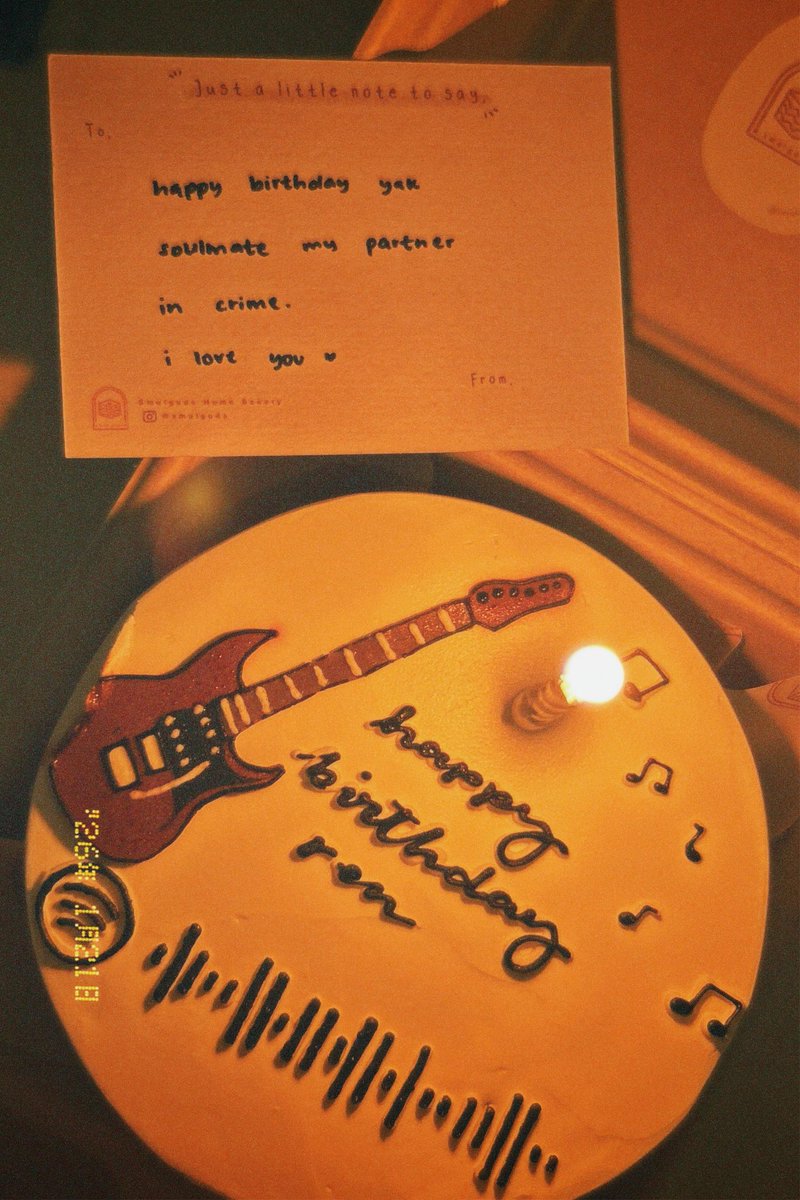 Just a little note to say,
To,
happy birthday yak
soulmate my partner
in crime.
i love you ♥
From,
happy
birthday
ren